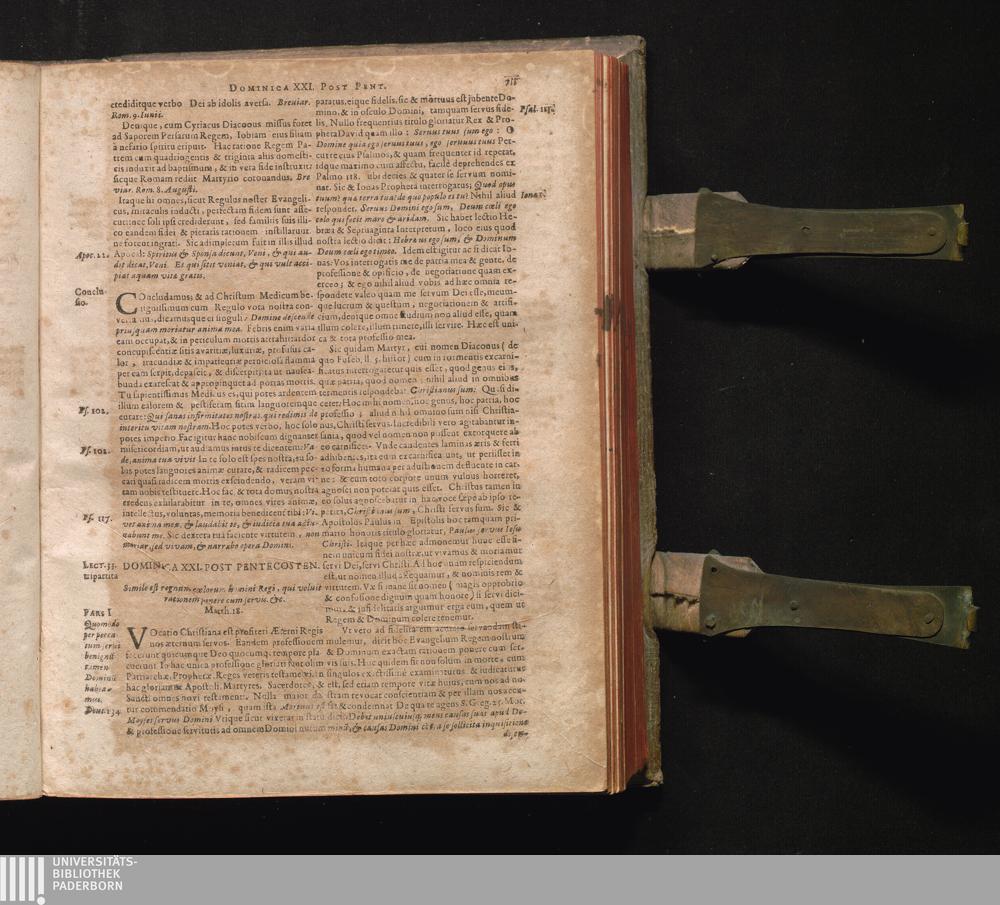 DOMINICA XXI. POST PENT.
crediditque verbo Dei ab idolis aversa. Breviar.
Rom. 9. Iunii.
Denique, cum Cyriacus Diaconus missus foret
ad Saporem Persarum Regem, Iobiam eius filiam
à nefario spiritu eripuit. Hac ratione Regem Pa-
trem cum quadringentis & triginta aliis domesti-
cis induxit ad baptismum, & in vera fide instruxit:
sicque Romam rediit Martyrio coronandus. Bre
viar. Rom. 8. Augusti.
Itaque hi omnes, sicut Regulus noster Evangeli-
cus, miraculis inducti, perfectam fidem sunt asse-
cuti: nec soli ipsi crediderunt, sed familiis suis illi-
co eandem fidei & pietatis rationem instillarunt
ne dicam ingrati. Sic adimpletum fuit in illis illud
Apoc. 22.
Apocal: Spiritus & Sponsa dicunt, Veni, & qui au-
dit dicat, Veni. Et qui sitit veniat, & qui vult acci-
piat aquam vitæ gratis.
Conclu-
sio.
COncludamus; & ad Christum Medicum be-
nignissimum cum Regulo vota nostra con-
vertamus, dicamusque ei singuli: Domine descende
prius, quam moriatur anima mea. Febris enim varia
eam occupat, & in periculum mortis attrahit: ardor
concupiscentiæ sitis avaritiæ, luxuriæ, profusus ca-
lor, iracundiæ & impatientiæ perniciosa flamma
per eam serpit, depascit, & discerpit; ita ut nausea-
bunda exarescat & appropinquet ad portas mortis.
Tu sapientissimus Medicus es, qui potes ardentem
illum calorem & pestiferam sitim languoremque
Ps. 102.
curare: Qui sanas infirmitates nostras, qui redimis de
interitu vitam nostram. Hoc potes verbo, hoc solo
potes imperio. Fac igitur hanc nobiscum dignanter
misericordiam, ut audiamus intus te dicentem: Va-
Ps. 102.
de, anima tua vivit. In te solo est spes nostra, tu so-
lus potes languores animæ curare, & radicem pec-
cati quasi radicem mortis exscindendo, veram vi-
tam nobis restituere. Hoc fac, & tota domus nostra
credens exhilarabitur in te, omnes vires animæ,
intellectus, voluntas, memoria benedicent tibi: Vi-
Ps. 117.
vet anima mea, & laudabit te, & iudicia tua adiu-
vabunt me. Sic dextera tua faciente virtutem, non
moriar, sed vivam, & narrabo opera Domini.
LECT. 33.
tripartita
DOMINICA XXI. POST PENTECOSTEN.
Simile est regnum cœlorum homini Regi, qui voluit
rationem ponere cum servis. &c.
Matth. 18.
PARS I
Quomodo
per pecca
tum servi
benignis
tamen
Dominū
habea-
mus.
VOcatio Christiana est profiteri Æterni Regis
nos æternum servos. Eandem professionem
fecerunt quicumque Deo quocumque tempore pla-
cuerunt. In hac unica professione gloriati
Patriarchæ, Prophetæ, Reges veteris testamenti, in
hac gloriantur Apostoli, Martyres, Sacerdotes, &
Sancti omnes novi testamenti. Nulla maior da-
Deut. 34
tur commendatio Moysi, quam ista Mortuus est
Moyses servus Domini. Utique sicut vixerat in statu
& professione servitutis ad omnem Domini nutum
718
paratus, eique fidelis, sic & mortuus est jubente Do-
mino, & in osculo Domini, tamquam servus fide-
Psal. 115.
lis. Nullo frequentius titulo gloriatur Rex & Pro-
pheta David quam illo: Servus tuus sum ego: O
Domine quia ego servus tuus, ego servus tuus. Per-
curre eius Psalmos, & quam frequenter id repetat,
idque maximo cum affectu, facilè deprehendes ex
Psalmo 118. ubi decies & quater se servum nomi-
nat. Sic & Ionas Propheta interrogatus; Quod opus
Ionæ 1.
tuum? quæ terra tua? de quo populo es tu? Nihil aliud
respondet. Servus Domini ego sum, Deum cœli ego
colo qui fecit mare & aridam. Sic habet lectio He-
bræa & Septuaginta Interpretum, loco eius quod
nostra lectio dicit: Hebræus ego sum, & Dominum
Deum cœli ego timeo. Idem est igitur ac si dicat Io-
nas: Vos interrogatis me de patria mea & gente, de
professione & opificio, de negotiatione quam ex-
erceo; & ego nihil aliud vobis ad hæc omnia re-
spondere valeo quam me servum Dei esse, meum-
que lucrum & quæstum, negotiationem & artifi-
cium, denique omne studium non aliud esse, quam
illum colere, illum timere, illi servire. Hæc est uni-
ca & tota professio mea.
Sic quidam Martyr, cui nomen Diaconus (de
quo Euseb. ll. 5. histor) cum in tormentis excarni-
ficatus interrogaretur quis esset, quod genus eius,
quæ patria, quod nomen: nihil aliud in omnibus
tormentis respondebat: Christianus sum: Quasi di-
ceret: Hoc mihi nomen, hoc genus, hoc patria, hoc
professio; aliud nihil omnino sum nisi Christia-
nus, Christi servus. Incredibili vero agitabantur in-
sania, quod vel nomen non possent extorquere ab
eo carnifices. Vnde candentes laminas æris & ferri
adhibentes, ita eum excarnificaverunt, ut periisset in
eo forma humana per adustionem defluente in car-
ne: & cum toto corpore unum vulnus horreret,
agnosci non poterat quis esset. Christus tamen in
eo solus agnoscebatur in hac voce sæpe ab ipso re-
petita, Christianus sum, Christi servus sum. Sic &
Apostolus Paulus in Epistolis hoc tamquam pri-
mario honoris titulo gloriatur, Paulus servus Iesu
Christi. Itaque per hæc admonemur hunc esse fi-
nem unicum fidei nostræ, ut vivamus & moriamur
servi Dei, servi Christi. Ad hoc unam respiciendum
est, ut nomen illud assequamur, & nominis rem &
virtutem. Væ si inane sit nomen (magis opprobrio
& confusione dignum quam honore) si servi dici-
mur, & infidelitatis arguimur erga eum, quem ut
Regem & Dominum colere tenemur.
Ut vero ad fidelitatem accurate servandam sti-
mulemur, dicit hoc Evangelium Regem nostrum
& Dominum exactam rationem ponere cum ser-
vis suis. Huc quidem fit non solum in morte, cum
singulos exactissimè examinaturus & iudicaturus
est, sed etiam tempore vitæ huius, cum nos ad no-
stram revocat conscientiam & per illam nos accu-
sat & condemnat. De qua re agens S. Greg. 25. Mor.
dicit: Debet uniuscuiusque mens causas suas apud De-
minū, & causas Domini contra se sollicita inquisitione
UNIVERSITÄTS-
BIBLIOTHEK
PADERBORN